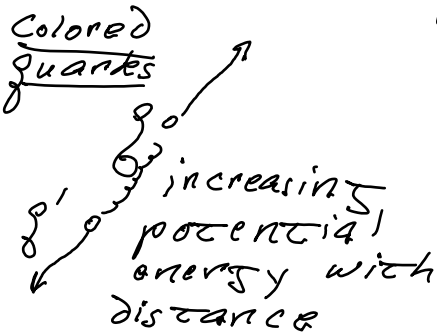 Colored
quarks
q
q'
increasing
potential
energy with
distance